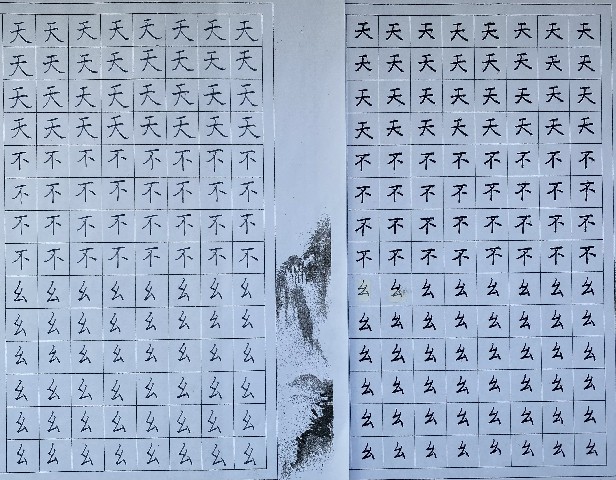 天天天天天天天天
天天天天天天天天
天天天天天天天天
天天天天天天天天
不不不不不不不不
不不不不不不不不
不不不不不不不不
不不不不不不不不
幺幺幺幺幺幺幺幺
幺幺幺幺幺幺幺幺
幺幺幺幺幺幺幺幺
幺幺幺幺幺幺幺幺
幺幺幺幺幺幺幺幺
幺幺幺幺幺幺幺幺
天天天天天天天天
天天天天天天天天
天天天天天天天天
天天天天天天天天
不不不不不不不不
不不不不不不不不
不不不不不不不不
不不不不不不不不
幺幺幺幺幺幺幺幺
幺幺幺幺幺幺幺幺
幺幺幺幺幺幺幺幺
幺幺幺幺幺幺幺幺
幺幺幺幺幺幺幺幺
幺幺幺幺幺幺幺幺